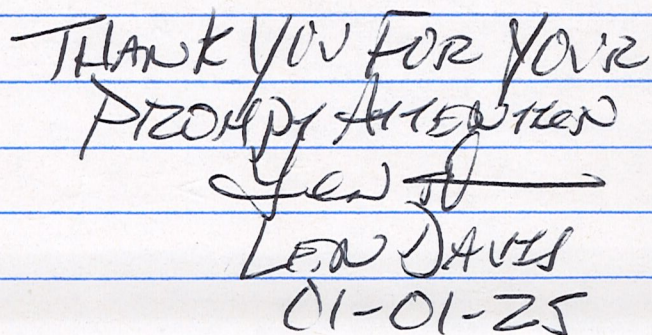 THANK YOU FOR YOUR
PROMPT ATTENTION
Len D
LEN DAVIS
01-01-25